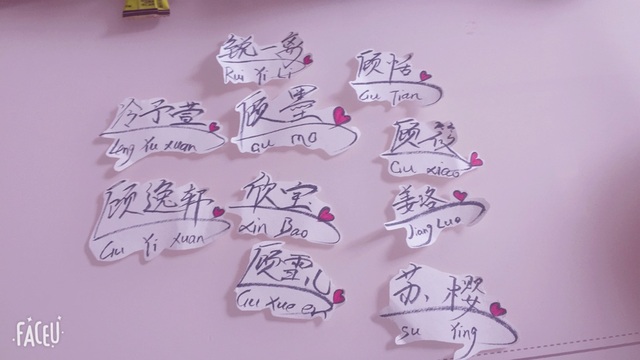 锐一
Rui Yi Li
顾恬
Gu Tian
冷予萱
Leng Yu xuan
顾墨
Gu mo
顾筱
Gu xiao
顾逸轩
Gu Yi Xuan
欣宝
Xin Bao
姜洛
Jiang Luo
顾雪儿
Gu xue er
苏樱
Su Ying
FACEU